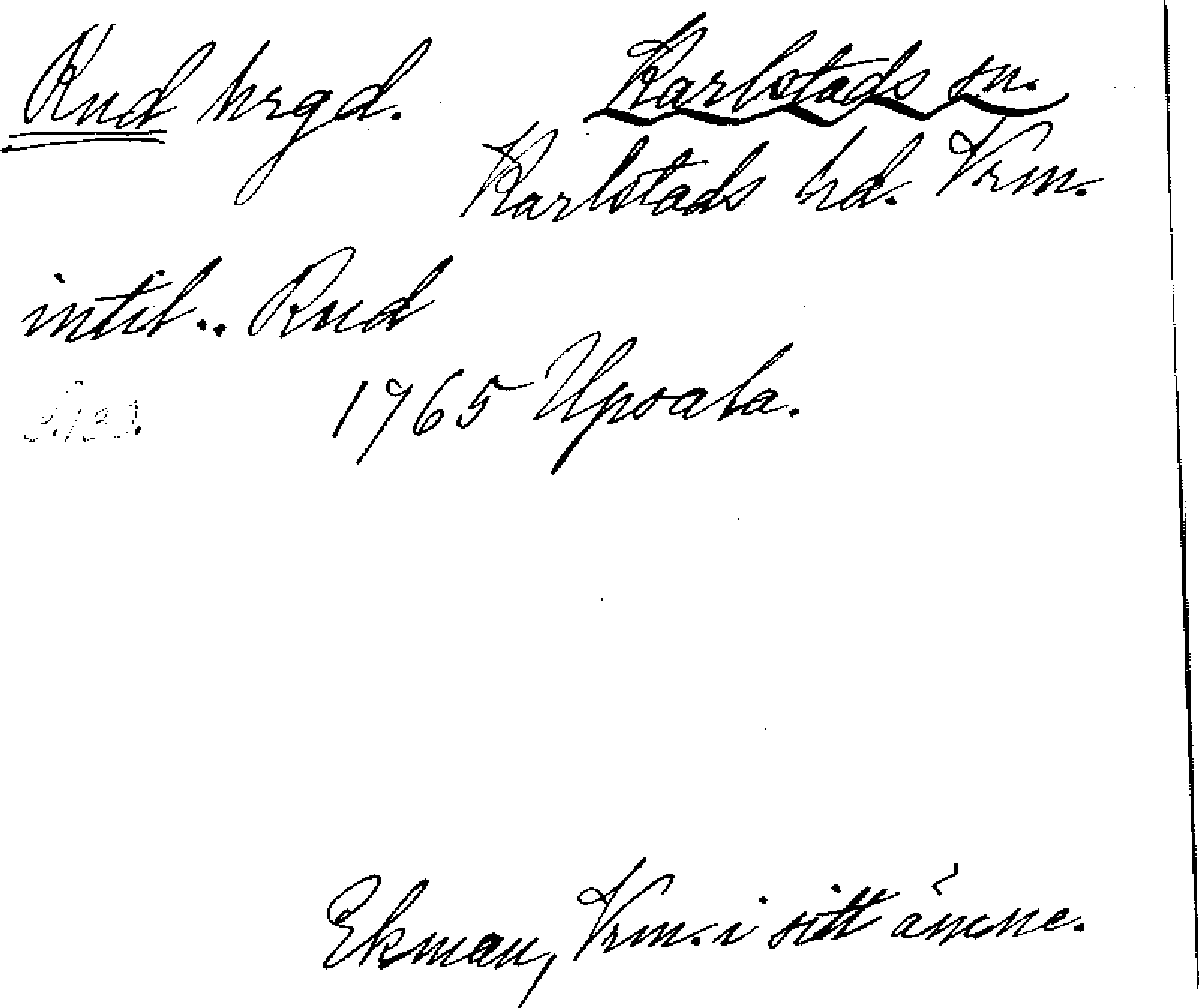 Rud hrgd. Karlstads sn.
Karlstads hd. Vrm.
intill.. Rud
1765 Upsala.
S. 123.
Ekman, Vrm. i sitt ämne.